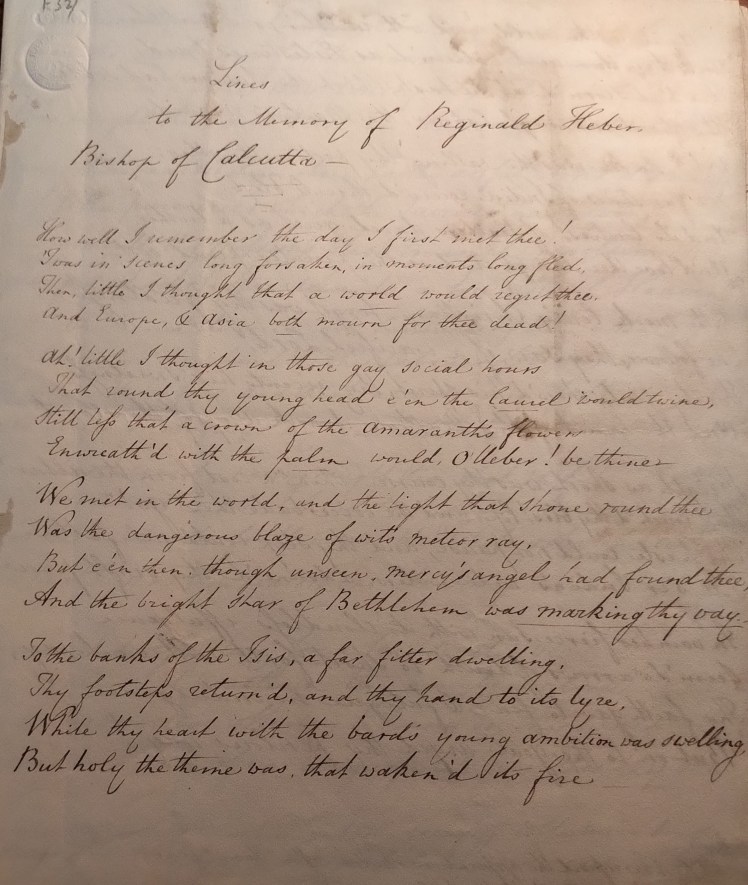 Lines
to the Memory of Reginald Heber.
Bishop of Calcutta —
How well I remember the day I first met thee!
'Twas in scenes long forsaken, in moments long fled,
Then, little I thought that a world would regret thee.
And Europe, & Asia both mourn for thee dead!
Ah! little I thought in those gay social hours
That round thy young head e'en the laurel would twine,
Still less that a crown of the amaranth's flowers
Enwreath'd with the palm would, O Heber! be thine —
We met in the world, and the light that shone round thee
Was the dangerous blaze of wits meteor ray,
But e'en then, though unseen, mercy's angel had found thee,
And the bright star of Bethlehem was marking thy way —
To the banks of the Isis, a far fitter dwelling,
Thy footsteps return'd, and thy hand to its lyre,
While thy heart with the bard's young ambition was swelling,
But holy the theme was, that waken'd its fire —